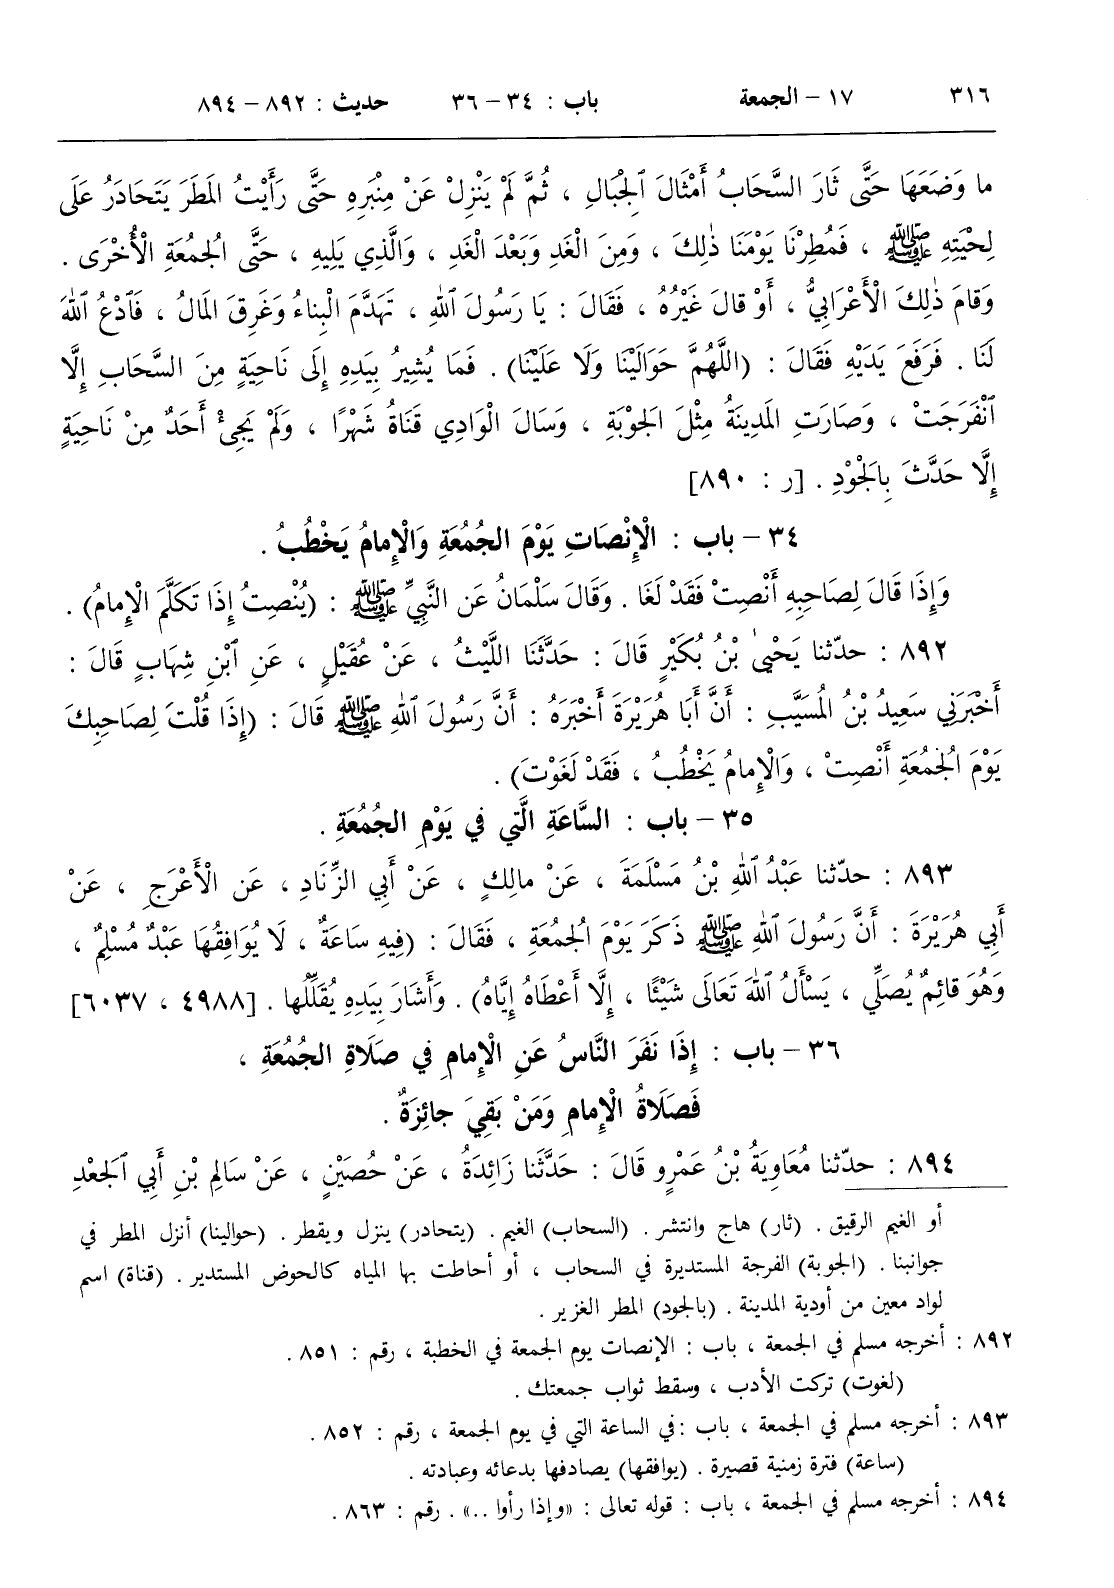 ٣١٦ ١٧ – الجمعة باب : ٣٤ – ٣٦ حديث : ٨٩٢ – ٨٩٤
ما وَضَعَهَا حَتَّى ثَارَ السَّحَابُ أَمْثَالَ ٱلْجِبَالِ ، ثُمَّ لَمْ يَنْزِلْ عَنْ مِنْبَرِهِ حَتَّى رَأَيْتُ المَطَرَ يَتَحَادَرُ عَلَى
لِحْيَتِهِ ﷺ ، فَمُطِرْنَا يَوْمَنَا ذٰلِكَ ، وَمِنَ الْغَدِ وَبَعْدَ الْغَدِ ، وَالَّذِي يَلِيهِ ، حَتَّى الجُمُعَةِ الْأُخْرَى .
وَقامَ ذٰلِكَ الْأَعْرَابِيُّ ، أَوْ قالَ غَيْرُهُ ، فَقَالَ : يَا رَسُولَ ٱللهِ ، تَهَدَّمَ الْبِنَاءُ وَغَرِقَ المَالُ ، فَٱدْعُ ٱللهَ
لَنَا . فَرَفَعَ يَدَيْهِ فَقَالَ : (اللَّهُمَّ حَوَالَيْنَا وَلَا عَلَيْنَا) . فَمَا يُشِيرُ بِيَدِهِ إِلَى نَاحِيَةٍ مِنَ السَّحَابِ إِلَّا
ٱنْفَرَجَتْ ، وَصَارَتِ المَدِينَةُ مِثْلَ الجَوْبَةِ ، وَسَالَ الْوَادِي قَنَاةُ شَهْرًا ، وَلَمْ يَجِئْ أَحَدٌ مِنْ نَاحِيَةٍ
إِلَّا حَدَّثَ بِالْجَوْدِ . [ر : ٨٩٠]
٣٤ – باب : الْإِنْصَاتِ يَوْمَ الجُمُعَةِ وَالْإِمامُ يَخْطُبُ .
وَإِذَا قَالَ لِصَاحِبِهِ أَنْصِتْ فَقَدْ لَغَا . وَقَالَ سَلْمَانُ عَنِ النَّبِيِّ ﷺ : (يُنْصِتُ إِذَا تَكَلَّمَ الْإِمامُ) .
٨٩٢ : حدّثنا يَحْيىٰ بْنُ بُكَيْرٍ قَالَ : حَدَّثَنَا اللَّيْثُ ، عَنْ عُقَيْلٍ ، عَنِ ٱبْنِ شِهَابٍ قَالَ :
أَخْبَرَنِي سَعِيدُ بْنُ المُسَيَّبِ : أَنَّ أَبَا هُرَيْرَةَ أَخْبَرَهُ : أَنَّ رَسُولَ ٱللهِ ﷺ قَالَ : (إِذَا قُلْتَ لِصَاحِبِكَ
يَوْمَ الجُمُعَةِ أَنْصِتْ ، وَالْإِمامُ يَخْطُبُ ، فَقَدْ لَغَوْتَ) .
٣٥ – باب : السَّاعَةِ الَّتِي في يَوْمِ الجُمُعَةِ .
٨٩٣ : حدّثنا عَبْدُ ٱللهِ بْنُ مَسْلَمَةَ ، عَنْ مالِكٍ ، عَنْ أَبِي الزِّنَادِ ، عَنِ الْأَعْرَجِ ، عَنْ
أَبِي هُرَيْرَةَ : أَنَّ رَسُولَ ٱللهِ ﷺ ذَكَرَ يَوْمَ الجُمُعَةِ ، فَقَالَ : (فِيهِ سَاعَةٌ ، لَا يُوَافِقُهَا عَبْدٌ مُسْلِمٌ ،
وَهُوَ قائِمٌ يُصَلِّي ، يَسْأَلُ ٱللهَ تَعَالَى شَيْئًا ، إِلَّا أَعْطَاهُ إِيَّاهُ) . وَأَشَارَ بِيَدِهِ يُقَلِّلُها . [٤٩٨٨ ، ٦٠٣٧]
٣٦ – باب : إِذَا نَفَرَ النَّاسُ عَنِ الْإِمامِ في صَلَاةِ الجُمُعَةِ ،
فَصَلَاةُ الْإِمامِ وَمَنْ بَقِيَ جائِزَةٌ .
٨٩٤ : حدّثنا مُعَاوِيَةُ بْنُ عَمْرٍو قَالَ : حَدَّثَنَا زَائِدَةُ ، عَنْ حُصَيْنٍ ، عَنْ سَالِمِ بْنِ أَبِي ٱلجَعْدِ
أو الغيم الرقيق . (ثار) هاج وانتشر . (السحاب) الغيم . (يتحادر) ينزل ويقطر . (حوالينا) أنزل المطر في
جوانبنا . (الجوبة) الفرجة المستديرة في السحاب ، أو أحاطت بها المياه كالحوض المستدير . (قناة) اسم
لواد معين من أودية المدينة . (بالجود) المطر الغزير .
٨٩٢ : أخرجه مسلم في الجمعة ، باب : الإنصات يوم الجمعة في الخطبة ، رقم : ٨٥١ .
(لغوت) تركت الأدب ، وسقط ثواب جمعتك .
٨٩٣ : أخرجه مسلم في الجمعة ، باب : في الساعة التي في يوم الجمعة ، رقم : ٨٥٢ .
(ساعة) فترة زمنية قصيرة . (يوافقها) يصادفها بدعائه وعبادته .
٨٩٤ : أخرجه مسلم في الجمعة ، باب : قوله تعالى : «وإذا رأوا ..» . رقم : ٨٦٣ .